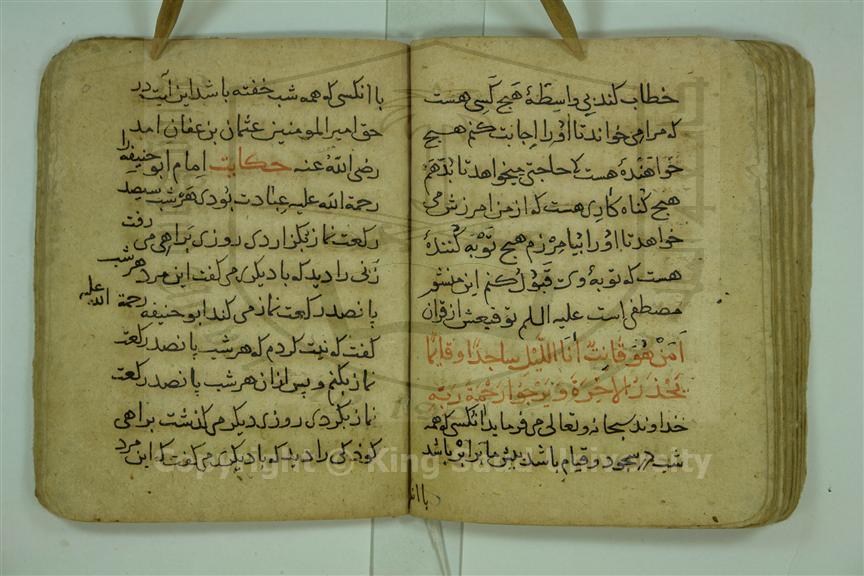 خطاب کند بی واسطهٔ هیچ کسی هست
که مرا می خواند تا اورا اجابت کنم هیچ
خواهندهٔ هست که حاجتی میخواهد تا بدهم
هیچ کناه کاری هست که از من امرزش می
خواهد تا اورا بیامرزم هیچ توبه کنندهٔ
هست که توبهٔ وی قبول کنم این منشور
مصطفی است علیه السلم توقیعش از قران
امن هو قانت أنا الليل ساجدا وقايما
يحذر الاخرة ويرجوا رحمة ربه
خداوند سبحانه وتعالی می فرماید انکسی که همه
شب در سجود و قیام باشد بیش ما برابر باشد
با ان
با انکسی که همه شب خفته باشد این آیت در
حق امیر المومنین عثمان بن عفان امد
رضی الله عنه حکایت امام ابو حنیفه را
رحمة الله علیه عبادت بودی هر شب سیصد
رکعت نماز بکزاردی روزی براهی می رفت
زنی را دید که با دیکری می کفت این مرد هر شب
پانصد رکعت نماز می کند ابو حنیفه رحمة الله علیه
کفت که نیت کردم که هر شب پانصد رکعت
نماز بکنم و پس ازان هر شب پانصد رکعت
نماز بکردی روزی دیکر می کذشت براهی
کودکی را دید که با دیکری می کفت که این مرد
Copyright © King Saud University